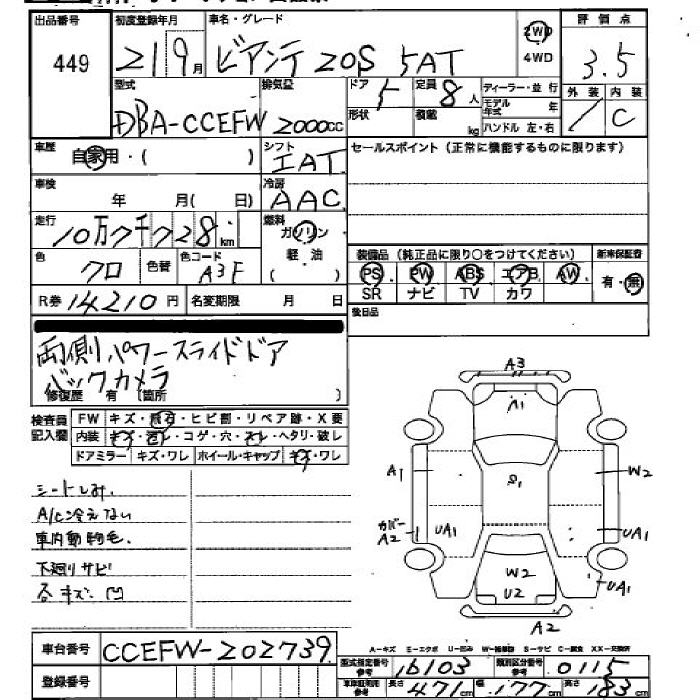 出品番号 初度登録年月 車名・グレード 2WD 評価点
449 21 9月 ビアンテ 20S 5AT 4WD 3.5
型式 排気量 ドア 5 定員 8人 ディーラー・並行 外装 内装
DBA-CCEFW 2000cc 形状 積載 kg モデル年式 年 / C
ハンドル 左・右
車歴 自家用・( ) シフト IAT セールスポイント (正常に機能するものに限ります)
車検 年 月( 日) 冷房 AAC
走行 10万7千728km 燃料 ガソリン
軽・油
( )
色 クロ 色替 色コード A3F 装備品 (純正品に限り○をつけてください) 新車保証書
PS PW ABS エアB AW 有・無
SR ナビ TV カワ
R券 14210円 名変期限 月 日 後日品
両側パワースライドドア
バックカメラ
修復歴 有 (箇所 )
検査員記入欄 FW キズ・飛石・ヒビ割・リペア跡・X要
内装 キズ・汚レ・コゲ・穴・スレ・ヘタリ・破レ
ドアミラー キズ・ワレ ホイール・キャップ キズ・ワレ
シートしみ.
A/C冷えない
車内動物毛.
下廻りサビ
各キズ.凹
A3
A1
A1 S1 W2
カバー
A2 UA1 UA1
UA1
W2
U2
A2
車台番号 CCEFW-202739
登録番号
A-キズ E-エクボ U-凹み W-補修跡 S-サビ C-腐食 XX-交換済
型式指定番号 参考 16103 類別区分番号 参考 0115
車検証利用 参考 長さ 471cm 幅 177cm 高さ 183cm